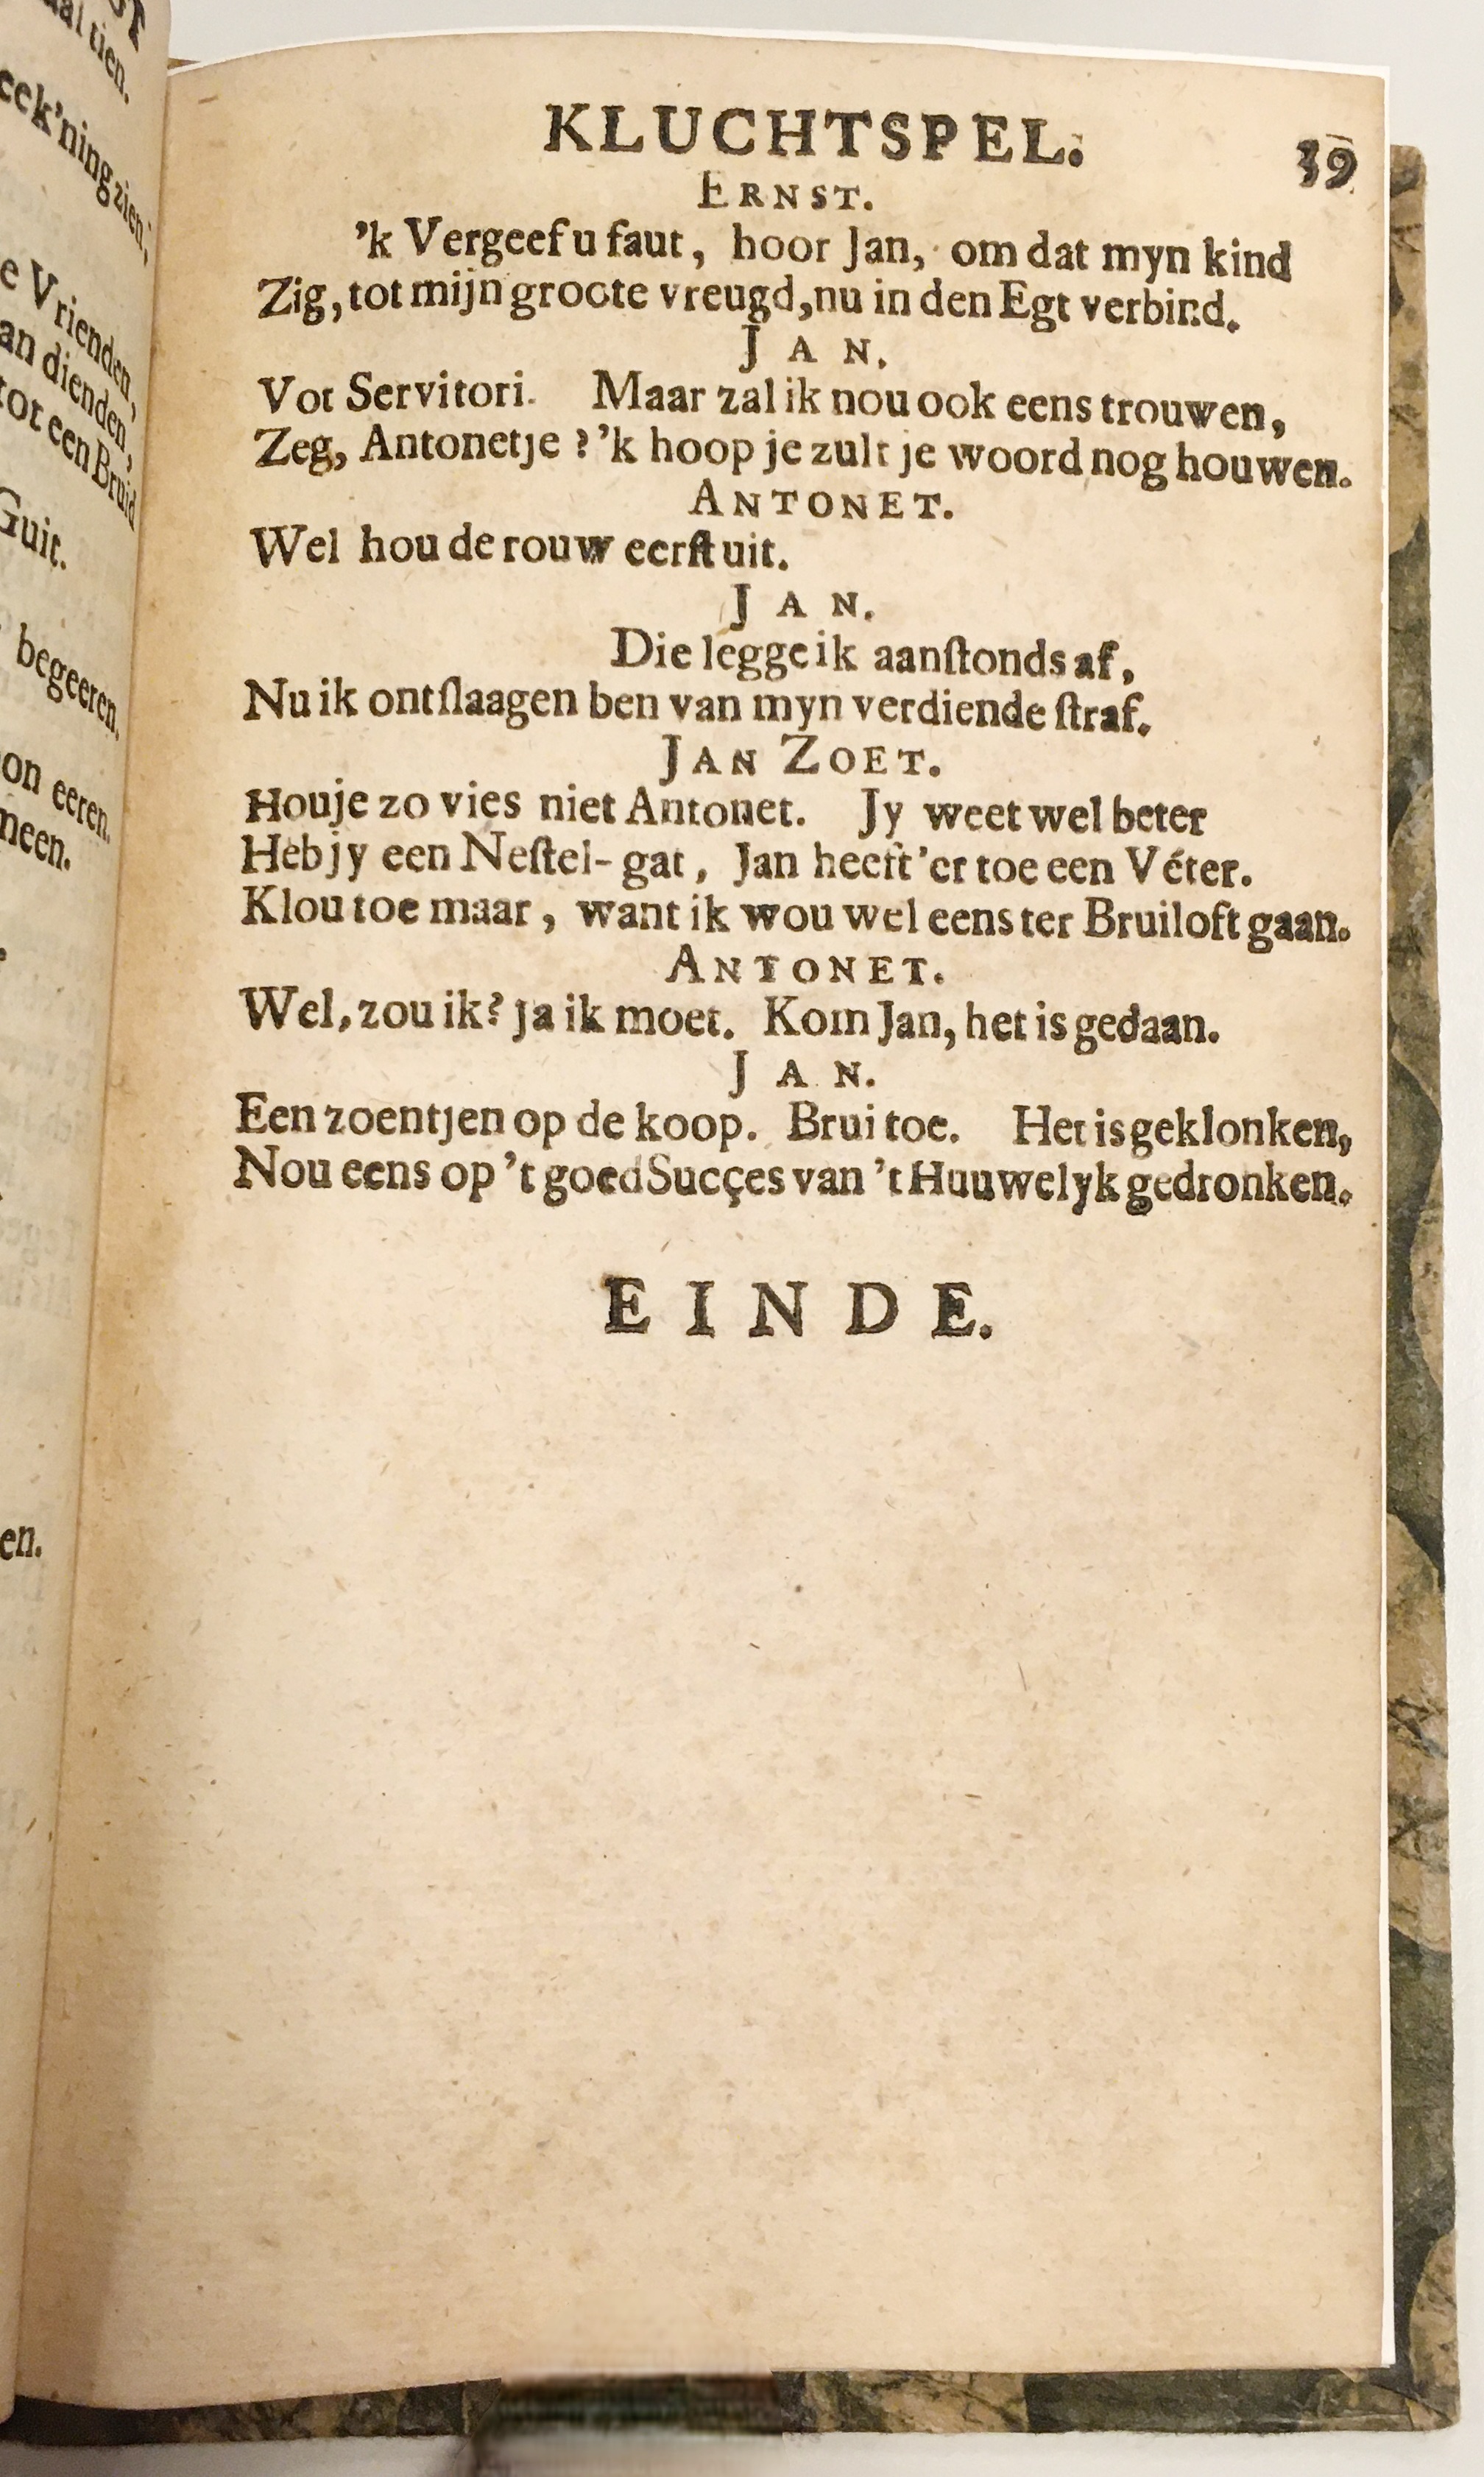 al tien.
eek'ning zien;
e Vrienden,
an dienden,
tot een Bruid
Guit.
begeeren.
on eeren.
neen.
en.
KLUCHTSPEL. 39
ERNST.
'k Vergeef u faut, hoor Jan, om dat myn kind
Zig, tot mijn groote vreugd, nu in den Egt verbind.
JAN.
Vot Servitori. Maar zal ik nou ook eens trouwen,
Zeg, Antonetje? 'k hoop je zult je woord nog houwen.
ANTONET.
Wel hou de rouw eerſt uit.
JAN.
Die legge ik aanſtonds af,
Nu ik ontſlaagen ben van myn verdiende ſtraf.
JAN ZOET.
Houje zo vies niet Antonet. Jy weet wel beter
Heb jy een Neſtel-gat, Jan heeft 'er toe een Véter.
Klou toe maar, want ik wou wel eens ter Bruiloft gaan.
ANTONET.
Wel, zou ik? ja ik moet. Kom Jan, het is gedaan.
JAN.
Een zoentjen op de koop. Brui toe. Het is geklonken,
Nou eens op 't goed Sucçes van 't Huuwelyk gedronken.
EINDE.